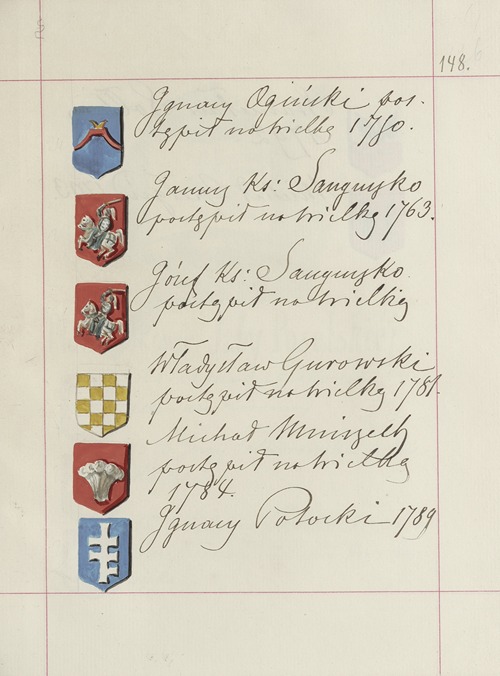 148.
Ignacy Ogiński pos-
tąpił na wielką 1750.
Janusz Ks: Sanguszko
postąpił na wielką 1763.
Józef Ks: Sanguszko
postąpił na wielką
Władysław Gurowski
postąpił na wielką 1781.
Michał Mniszech
postąpił na wielką
1784.
Ignacy Potocki 1789